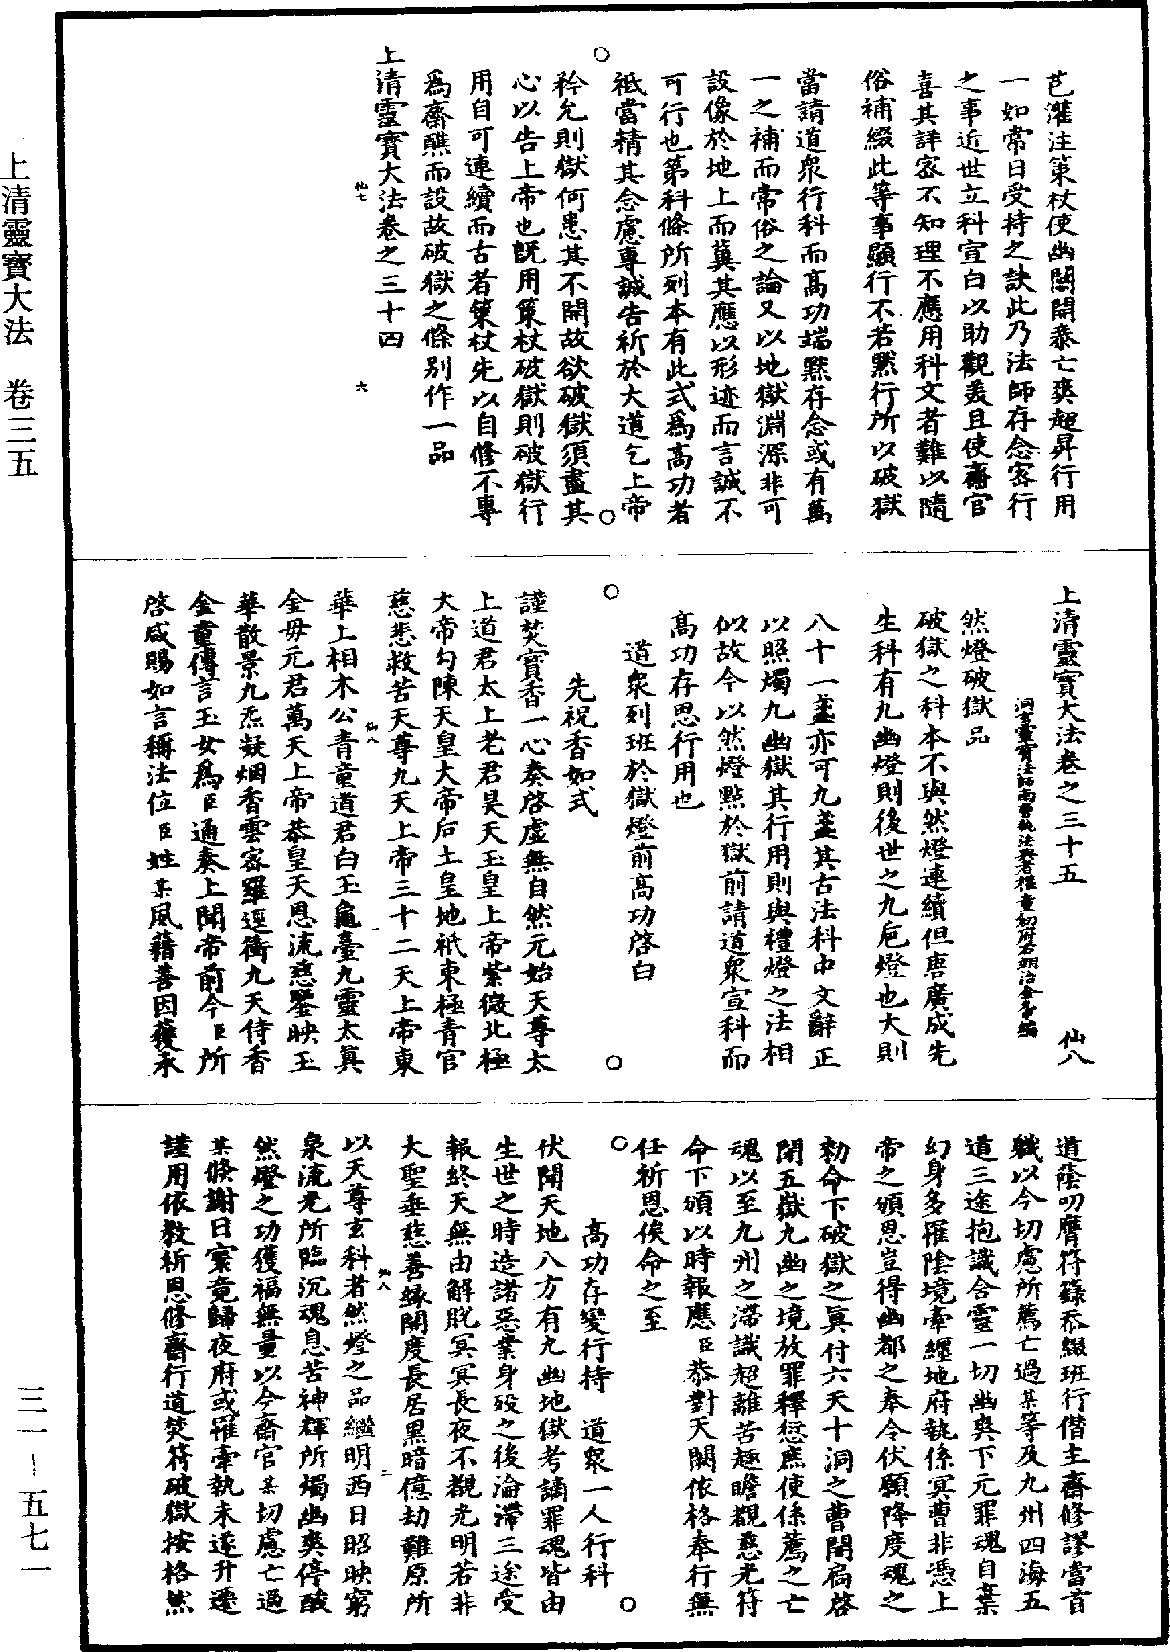 上清靈寶大法 卷三五
三一－五七一
芒灌注策杖使幽關開泰亡爽超昇行用
一如常日受持之訣此乃法師存念密行
之事近世立科宣白以助觀美且使齋官
喜其詳密不知理不應用科文者難以隨
俗補綴此等事顯行不若默行所以破獄
當請道衆行科而高功端默存念或有萬
一之補而常俗之論又以地獄淵源非可
設像於地上而冀其應以形迹而言誠不
可行也第科條所列本有此式爲高功者
祇當精其念慮專誠告祈於大道乞上帝
矜允則獄何患其不開故欲破獄須盡其
心以告上帝也既用策杖破獄則破獄行
用自可連續而古者策杖先以自修不專
爲齋醮而設故破獄之條別作一品
上清靈寶大法卷之三十四
仙七 六
上清靈寶大法卷之三十五 仙八
洞玄靈寶法師南曹執法典者權童初府右翊治金允中編
然燈破獄品
破獄之科本不與然燈連續但唐廣成先
生科有九幽燈則後世之九巵燈也大則
八十一盞亦可九盞其古法科中文辭正
以照燭九幽獄其行用則與禮燈之法相
似故今以然燈點於獄前請道衆宣科而
高功存思行用也
道衆列班於獄燈前高功啓白
先祝香如式
謹焚寶香一心奏啓虛無自然元始天尊太
上道君太上老君昊天玉皇上帝紫微北極
大帝勾陳天皇大帝后土皇地祇東極青宮
慈悲救苦天尊九天上帝三十二天上帝東
仙八 一
華上相木公青童道君白玉龜臺九靈太眞
金母元君萬天上帝恭皇天恩流慈鑒映玉
華散景九炁凝烟香雲密羅逕衝九天侍香
金童傳言玉女爲臣通奏上聞帝前今臣所
啓咸賜如言稱法位臣姓某夙藉善因獲承
道蔭叨膺符籙忝綴班行偕主齋修謬當首
職以今切慮所薦亡過某等及九州四海五
道三途抱識含靈一切幽爽下元罪魂自棄
幻身多罹陰境牽纒地府執係冥曹非憑上
帝之頒恩豈得幽都之奉令伏願降度魂之
勑命下破獄之眞付六天十洞之曹開扃啓
閉五嶽九幽之境放罪釋愆庶使係薦之亡
魂以至九州之滯識超離苦趣瞻覩慈光符
命下頒以時報應臣恭對天闕依格奉行無
任祈恩俟命之至
高功存變行持 道衆一人行科
伏聞天地八方有九幽地獄考謫罪魂皆由
生世之時造諸惡業身殁之後淪滯三途受
報終天無由解脫冥冥長夜不覩光明若非
大聖垂慈善緣開度長居黑暗億劫難原所
仙八 二
以天尊玄科者然燈之品繼明西日昭映窮
泉流光所臨沉魂息苦神輝所燭幽爽停酸
然燈之功獲福無量以今齋官某切慮亡過
某倐謝日寮竟歸夜府或罹牽執未遂升遷
謹用依教祈恩修齋行道焚符破獄按格然